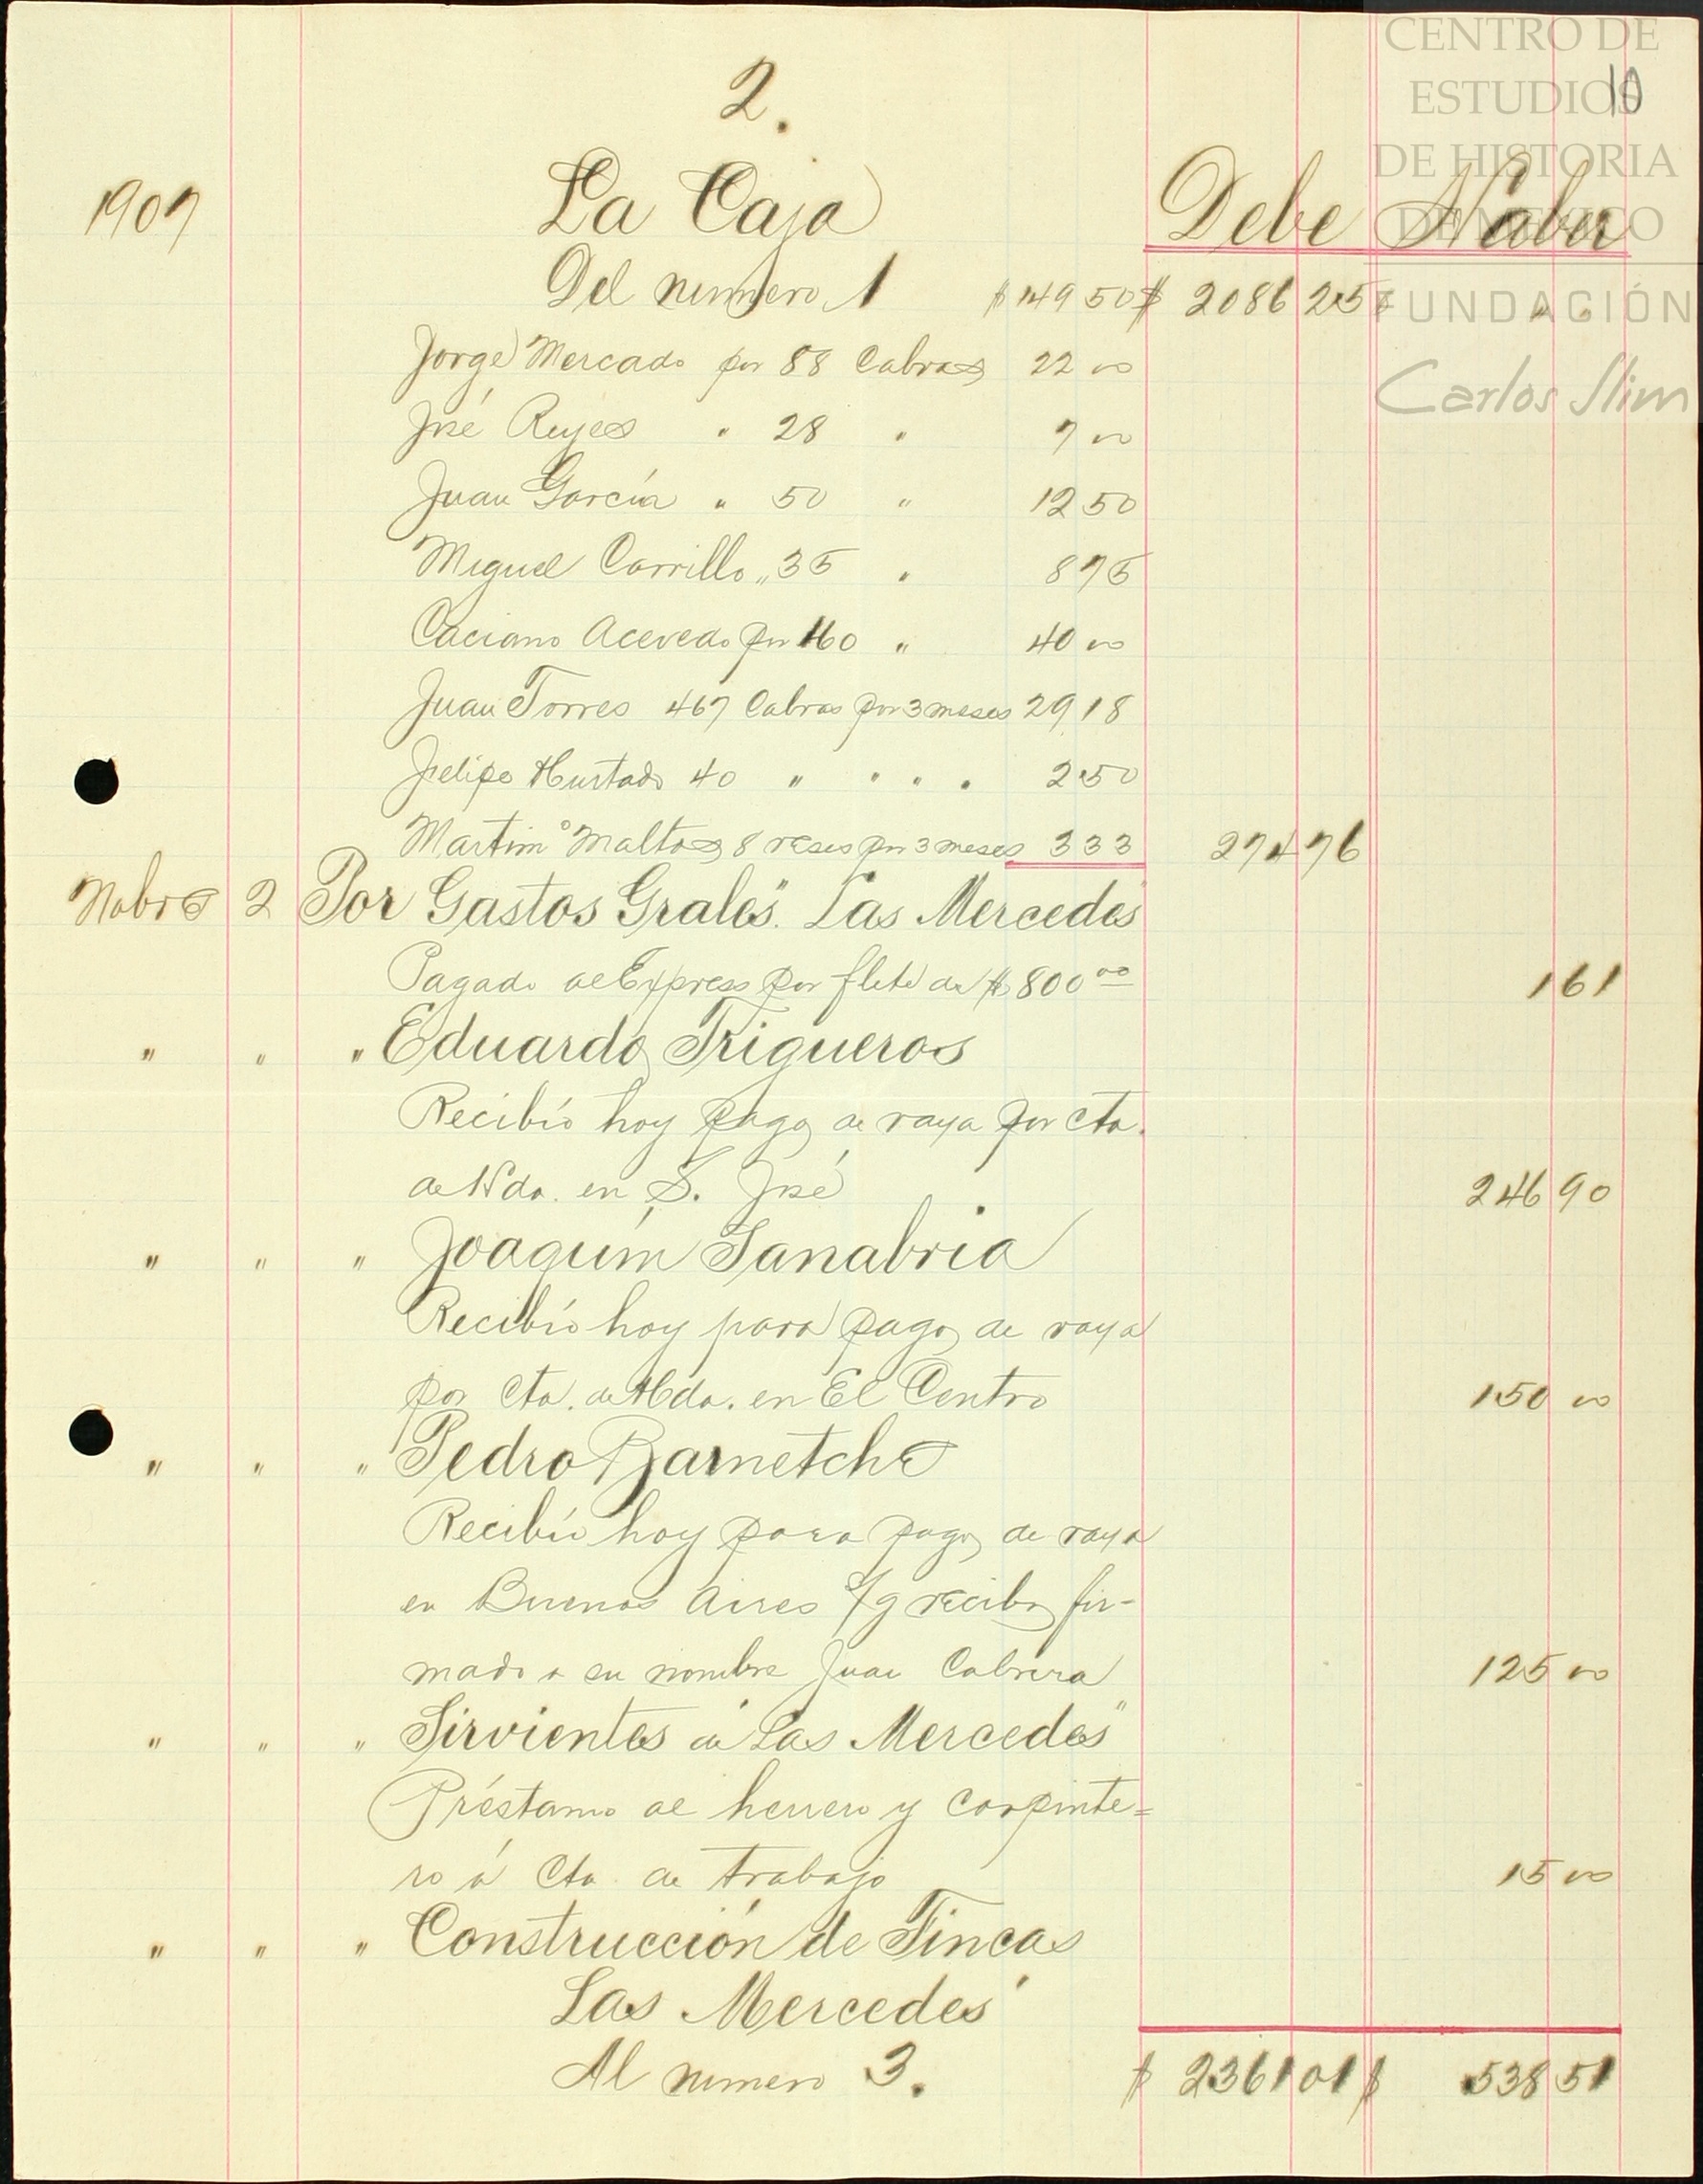 CENTRO DE
ESTUDIOS
DE HISTORIA
DE MEXICO
FUNDACIÓN
Carlos Slim
10
2.
1907 La Caja Debe Haber
Del numero 1 $ 149 50 $ 2086 25 $ " "
Jorge Mercado por 88 Cabras 22 00
José Reyes " 28 " 7 00
Juan García " 50 " 12 50
Miguel Carrillo " 35 " 8 75
Caciano Acevedo por 160 " 40 00
Juan Torres 467 Cabras por 3 meses 29 18
Felipe Hurtado 40 " " " " 2 50
Martin Maltos 8 reses por 3 meses 3 33 274 76
Nobre 2 Por Gastos Grales. "Las Mercedes"
Pagado al Express por flete de $800 00 1 61
" " " Eduardo Trigueros
Recibío hoy pago de raya por cta.
de Hda. en S. José 246 90
" " " Joaquím Sanabria
Recibío hoy para pago de raya
por cta. de Hda. en El Centro 150 00
" " " Pedro Barnetche
Recibío hoy para pago de raya
en Buenos Aires s/g recibo fir-
mado a su nombre Juan Cabrera 125 00
" " " Sirvientes de "Las Mercedes"
Préstamo al herrero y carpinte=
ro á Cta. de trabajo 15 00
" " " Construcción de Fincas
Las Mercedes
Al numero 3. $ 2361 01 $ 538 51